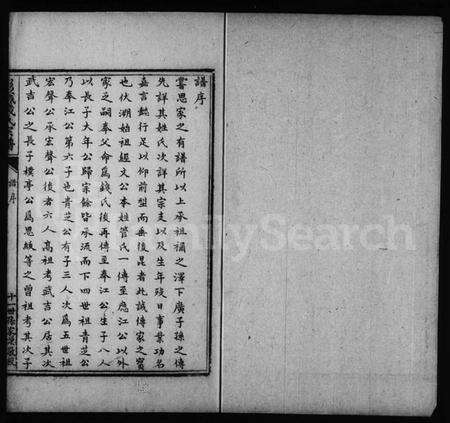 譜序
嘗思家之有譜所以上承祖禰之澤下廣子孫之傳
先詳其姓氏次詳其宗支以及生年歿日事業功名
嘉言懿行足以仰前型而垂後昆者此誠傳家之寶
也伏溯始祖經文公本姓管氏一傳至應江公以外
家之嗣奉父命為錢氏後再傳至奉江公生子八人
以長子大年公歸宗餘皆承流而下四世祖青芝公
乃奉江公第六子也青芝公有子三人次為五世祖
宏聲公承宏聲公後者六人高祖考武吉公居其次
武吉公之長子樸亭公為思紱等之曾祖考其次子
譜序
FamilySearch